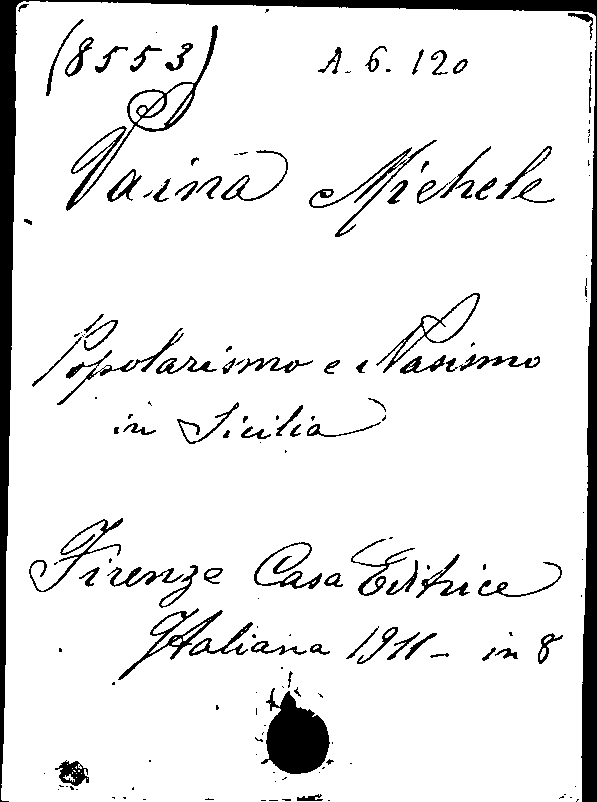 (8553) A. 6. 120
Vaina Michele
Popolarismo e Nasismo
in Sicilia
Firenze Casa Editrice
Italiana 1911 - in 8